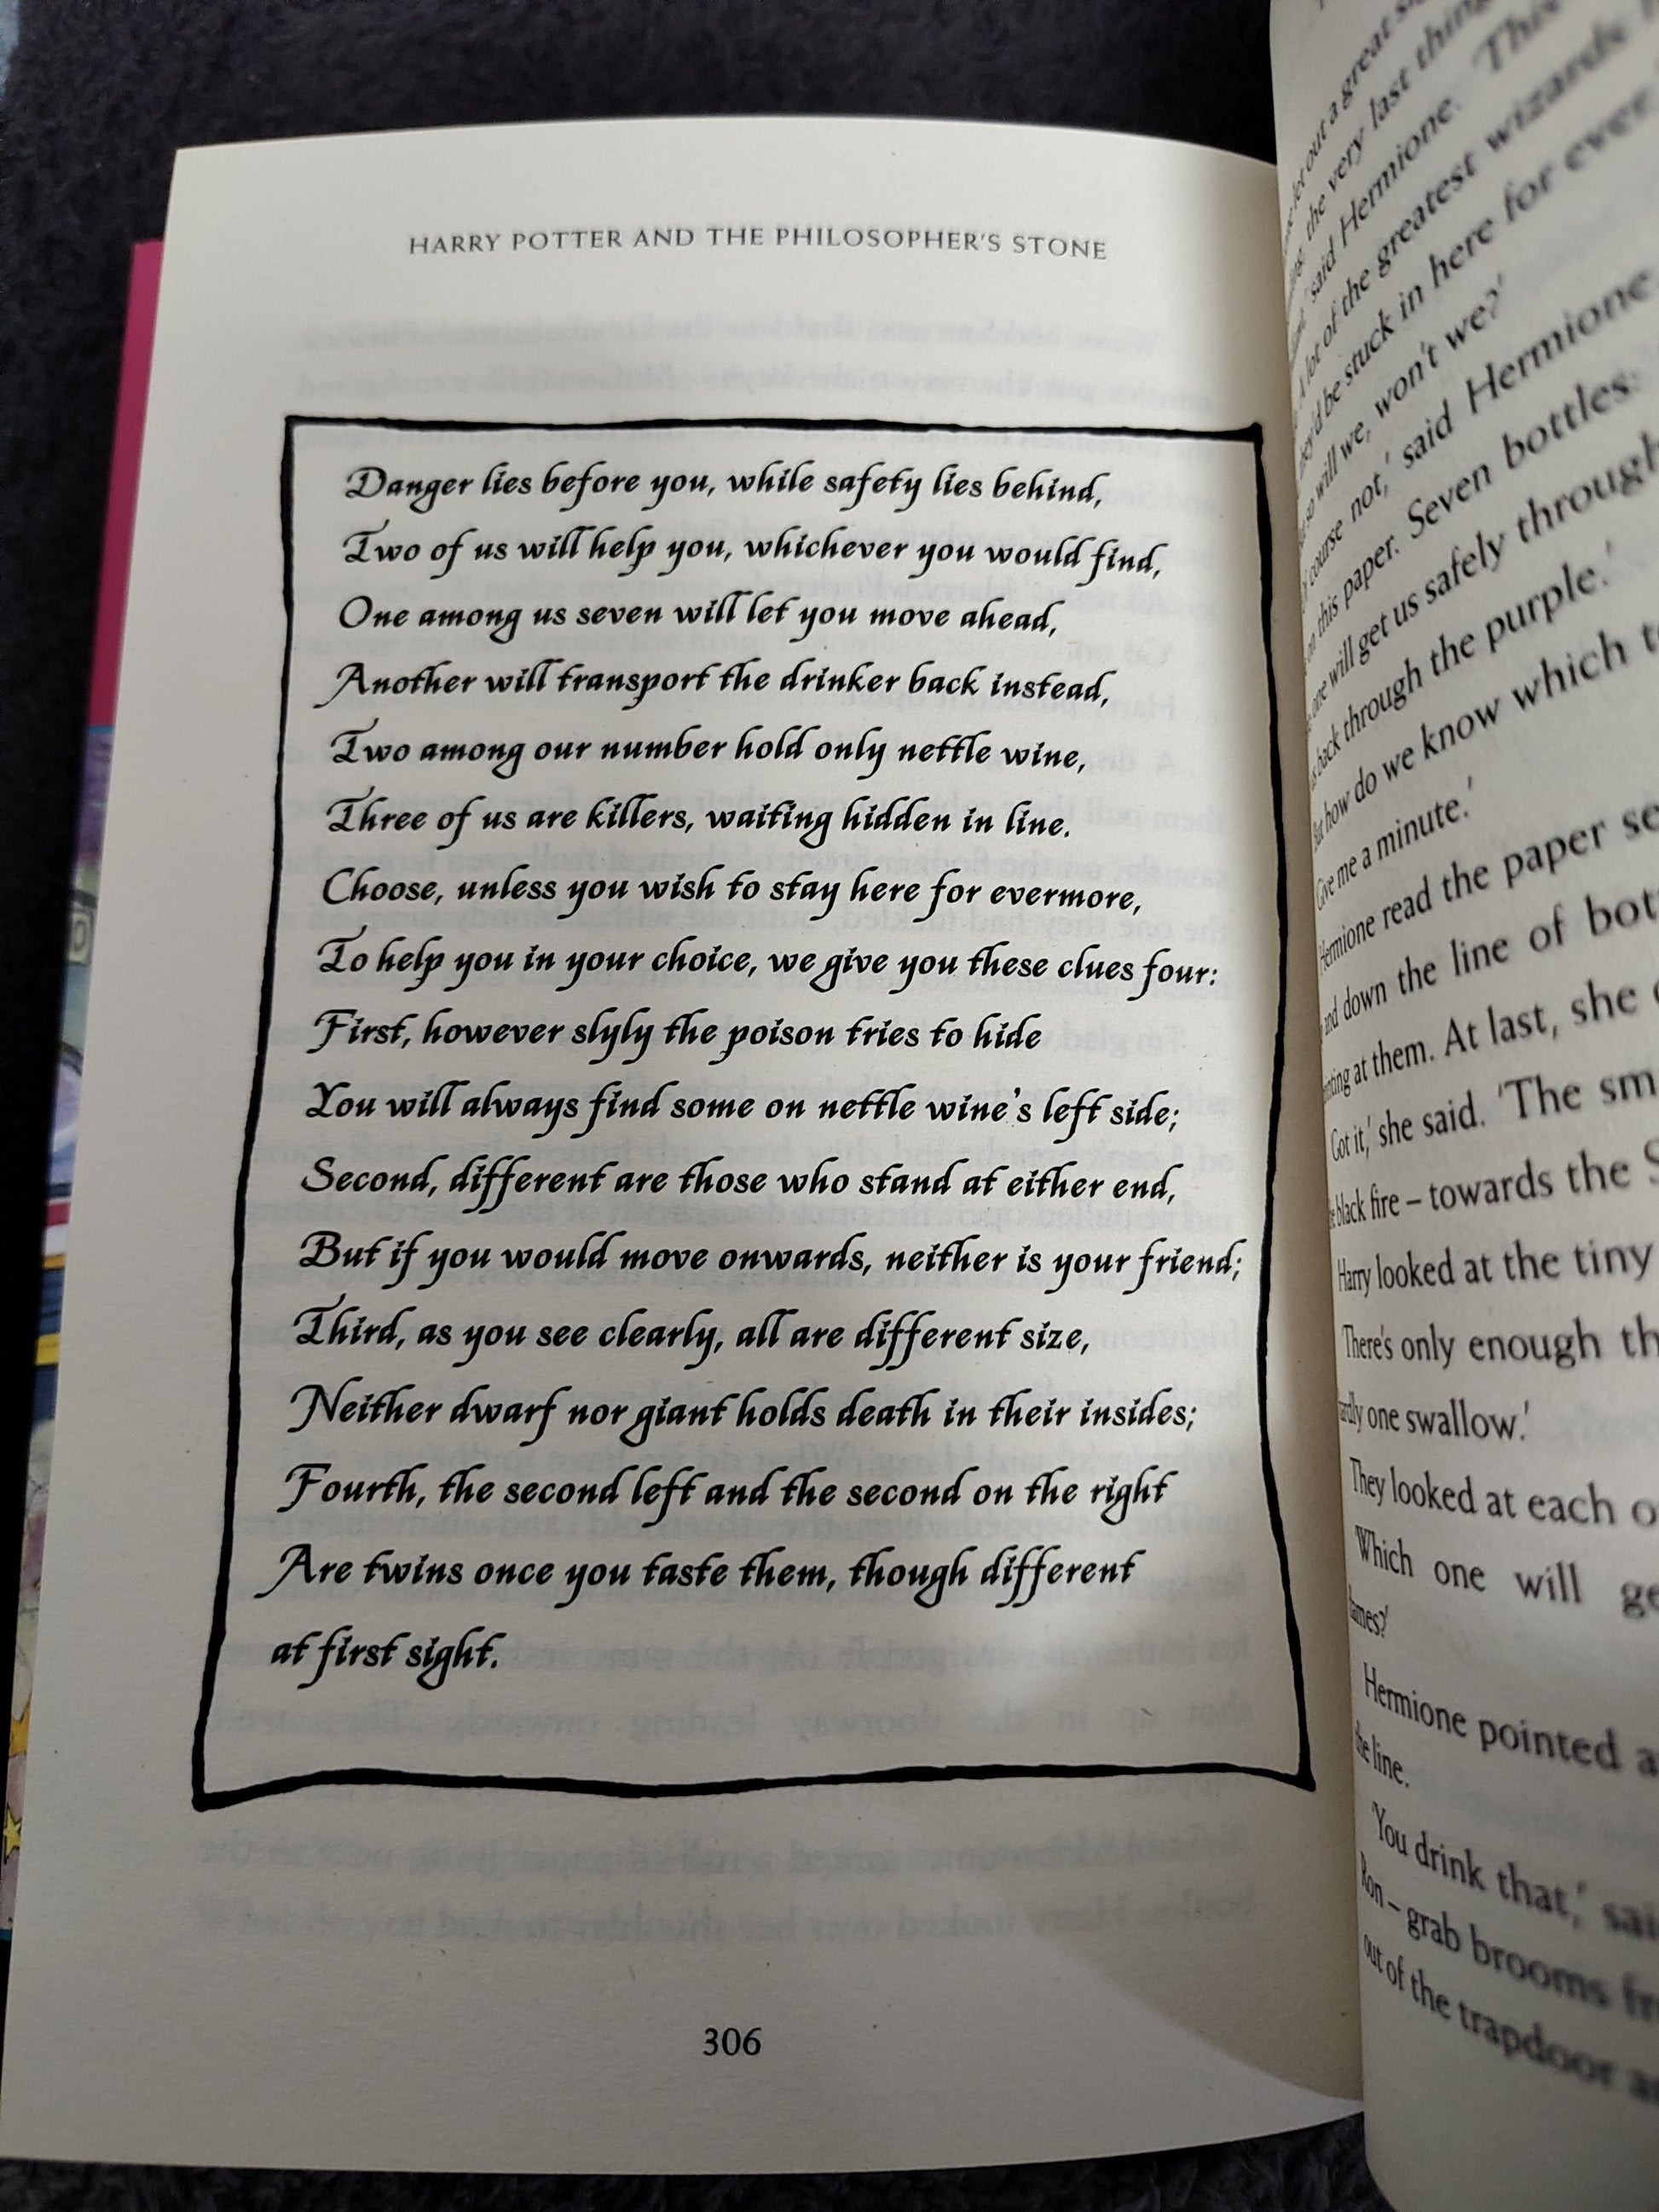 HARRY POTTER AND THE PHILOSOPHER'S STONE
Danger lies before you, while safety lies behind,
Two of us will help you, whichever you would find,
One among us seven will let you move ahead,
Another will transport the drinker back instead,
Two among our number hold only nettle wine,
Three of us are killers, waiting hidden in line.
Choose, unless you wish to stay here for evermore,
To help you in your choice, we give you these clues four:
First, however slyly the poison tries to hide
You will always find some on nettle wine's left side;
Second, different are those who stand at either end,
But if you would move onwards, neither is your friend;
Third, as you see clearly, all are different size,
Neither dwarf nor giant holds death in their insides;
Fourth, the second left and the second on the right
Are twins once you taste them, though different
at first sight.
306
let out a great
the very last thing
said Hermione. This
A lot of the greatest wizards
be stuck in here for ever
so will we, won't we?'
course not,' said Hermione.
this paper. Seven bottles:
one will get us safely through
back through the purple.'
how do we know which
Give me a minute.'
Hermione read the paper
and down the line of
at them. At last, she
Got it,' she said. 'The
black fire – towards the
Harry looked at the tiny
There's only enough
one swallow.'
They looked at each
Which one will
Hermione pointed
the line.
You drink that,'
Ron – grab brooms
out of the trapdoor